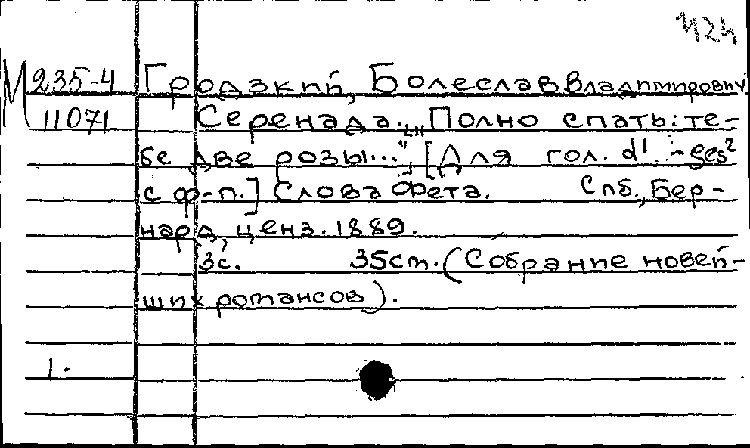 М 235-4 Гродзкий, Болеслав Владимирович
11071 Серенада. „Полно спать: те-
бе две розы...", [Для гол. d¹ - ges²
с ф-п.] Слова Фета. Спб., Бер-
нард, ценз. 1889.
3с. 35cm. (Собрание новей-
ших романсов).
1.